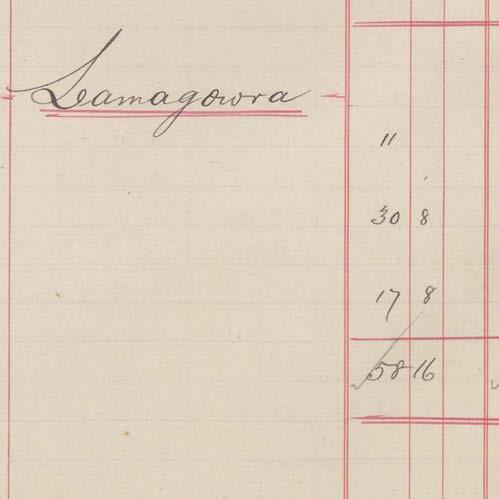 Lamagowra
11
30 8
17 8
58 16